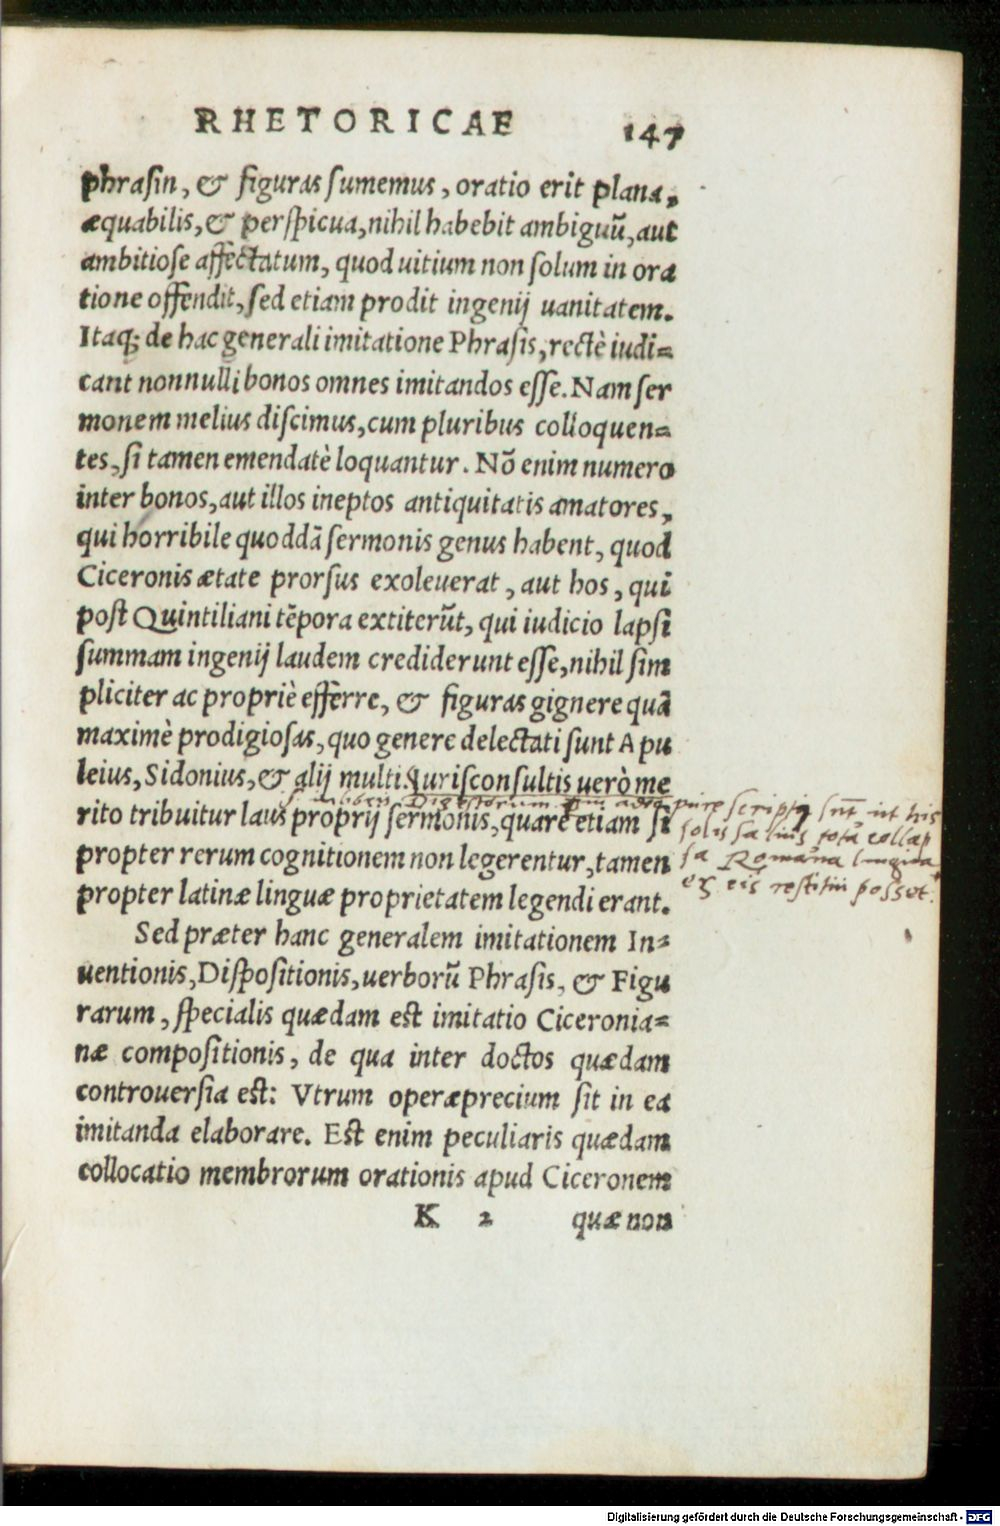 RHETORICAE 147
phrasin, & figuras sumemus, oratio erit plana,
æquabilis, & perspicua, nihil habebit ambiguũ, aut
ambitiose affectatum, quod uitium non solum in ora
tione offendit, sed etiam prodit ingenij uanitatem.
Itaq; de hac generali imitatione Phrasis, rectè iudi=
cant nonnulli bonos omnes imitandos esse. Nam ser
monem melius discimus, cum pluribus colloquen=
tes, si tamen emendatè loquantur. Nõ enim numero
inter bonos, aut illos ineptos antiquitatis amatores,
qui horribile quoddã sermonis genus habent, quod
Ciceronis ætate prorsus exoleuerat, aut hos, qui
post Quintiliani tẽpora extiterũt, qui iudicio lapsi
summam ingenij laudem crediderunt esse, nihil sim
pliciter ac propriè efferre, & figuras gignere quã
maximè prodigiosas, quo genere delectati sunt Apu
leius, Sidonius, & alij multi. Iurisconsultis uerò me
rito tribuitur laus proprij sermonis, quare etiam si
propter rerum cognitionem non legerentur, tamen
propter latinæ linguæ proprietatem legendi erant.
Digestorum pure scripti sũt ut his
solis tota collap
sa Romana lingua
ex eis restitui posset.
Sed præter hanc generalem imitationem In=
uentionis, Dispositionis, uerborũ Phrasis, & Figu
rarum, specialis quædam est imitatio Ciceronia=
næ compositionis, de qua inter doctos quædam
controuersia est: Vtrum operæprecium sit in ea
imitanda elaborare. Est enim peculiaris quædam
collocatio membrorum orationis apud Ciceronem
K 2 quæ non
Digitalisierung gefördert durch die Deutsche Forschungsgemeinschaft - DFG